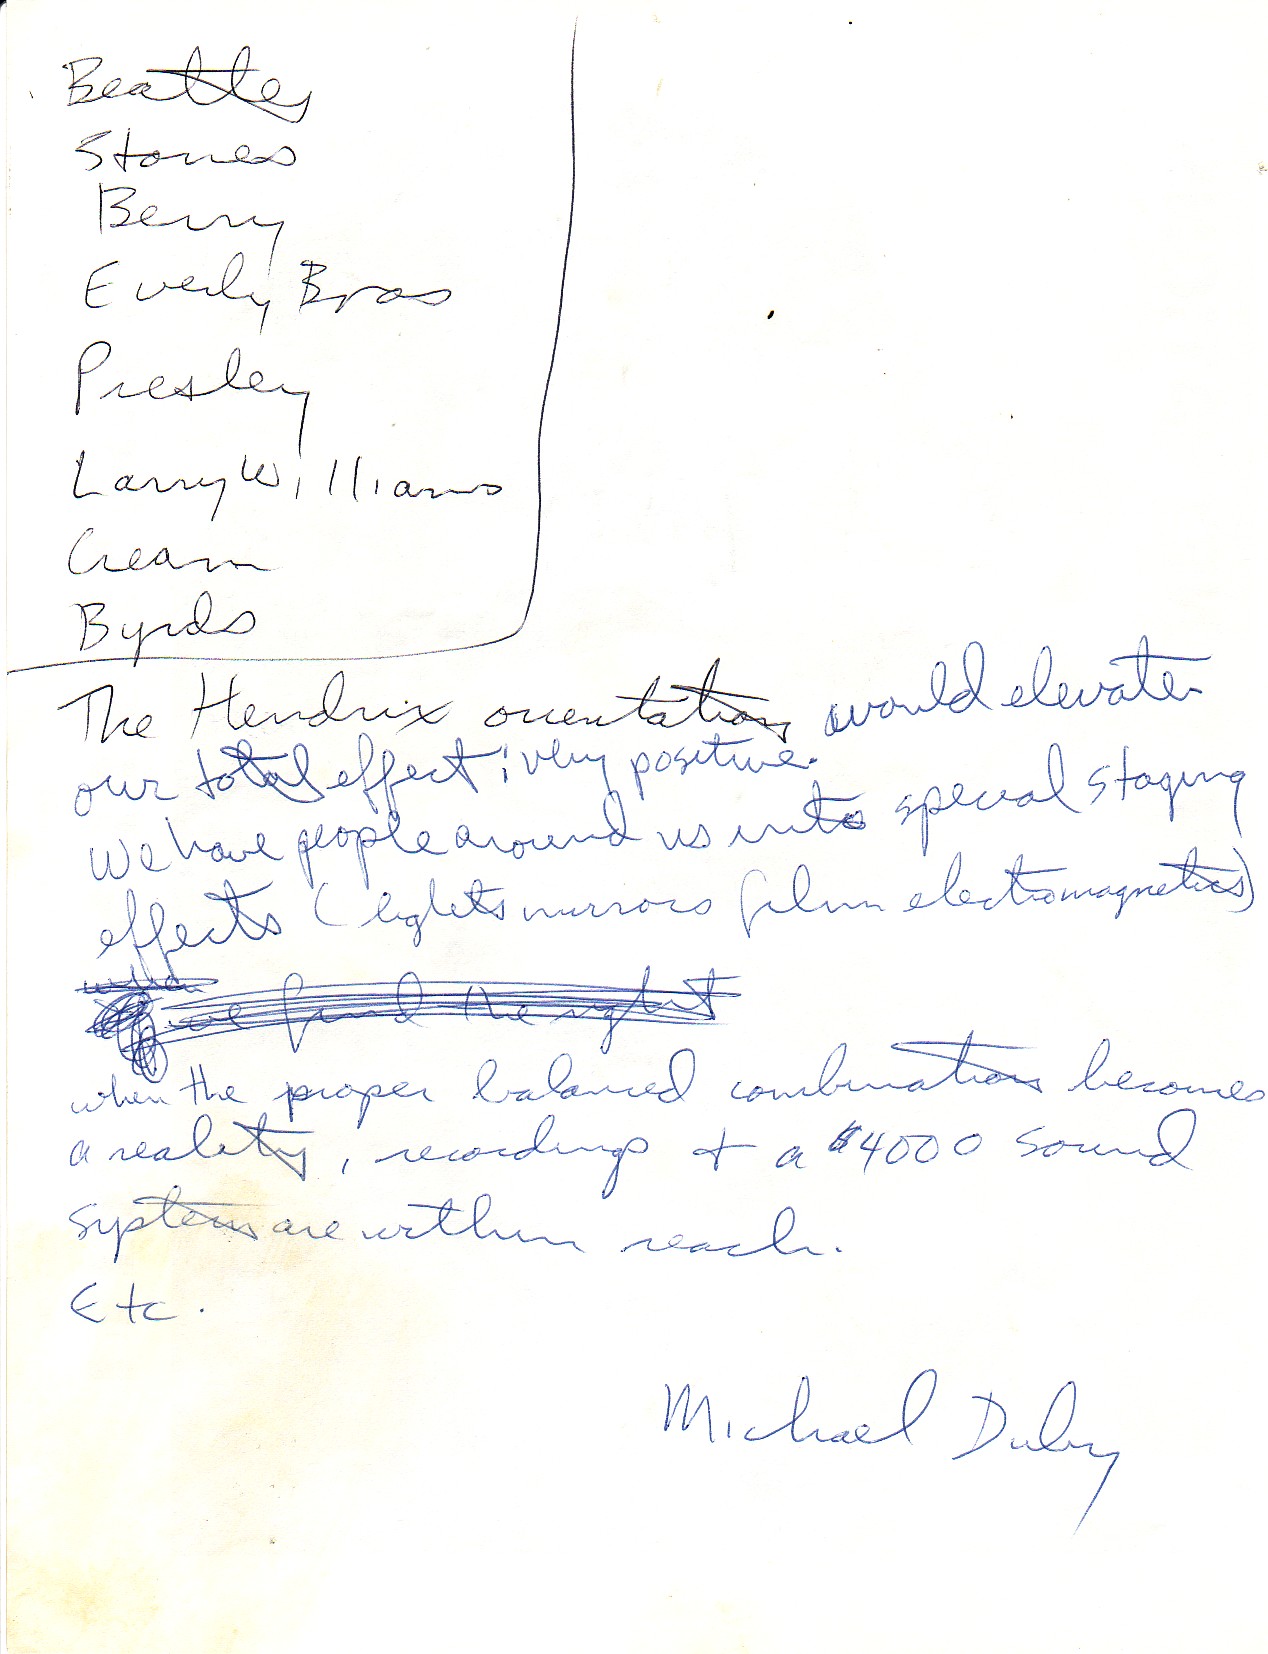 Beatles
Stones
Berry
Everly Bros
Presley
Larry Williams
Cream
Byrds
The Hendrix orientation would elevate
our total effect; very positive.
We have people around us into special staging
effects (lights mirrors film electromagnetics)
when
we find the right
when the proper balanced combination becomes
a reality, recordings + a $4000 sound
system are within reach.
Etc.
Michael